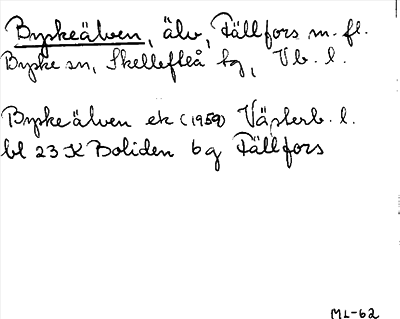 Byskeälven, älv, Fällfors m. fl.
Byske sn, Skellefteå kg, Vb. l.
Byskeälven ek (1959) Västerb. l.
bl 23 K Boliden bg Fällfors
ML-62